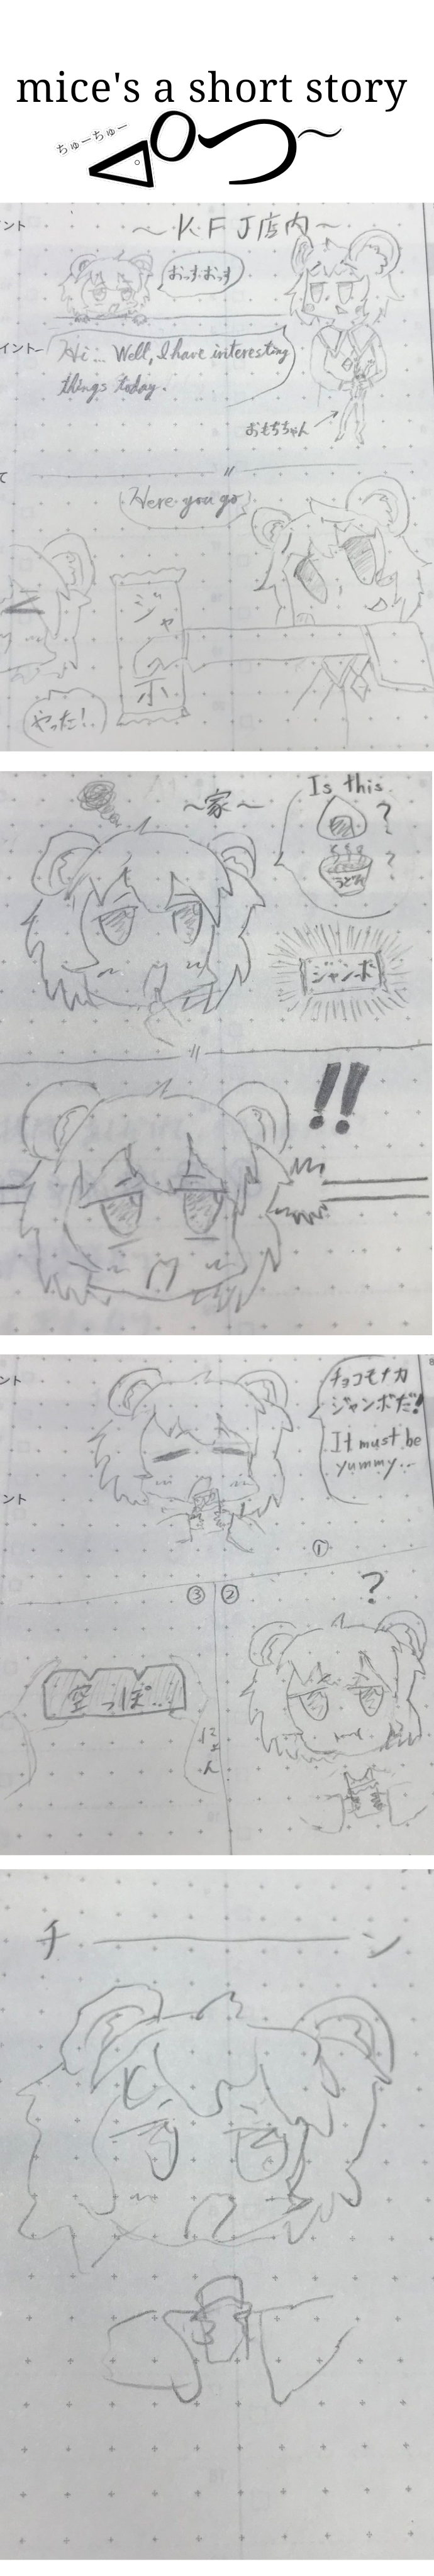 mice's a short story
ちゅーちゅー
ント
～KFJ店内～
おっすおっす
イント
Hi... Well, I have interesting
things today.
おもちちゃん
て
Here you go
ジャ
ボ
やった!
～家～
Is this
?
うどん
?
ジャンボ
!!
ント
チョコモナカ
ジャンボだ!
It must be
yummy...
ント
①
?
③ ②
空っぽ...
にょん
チ────ン